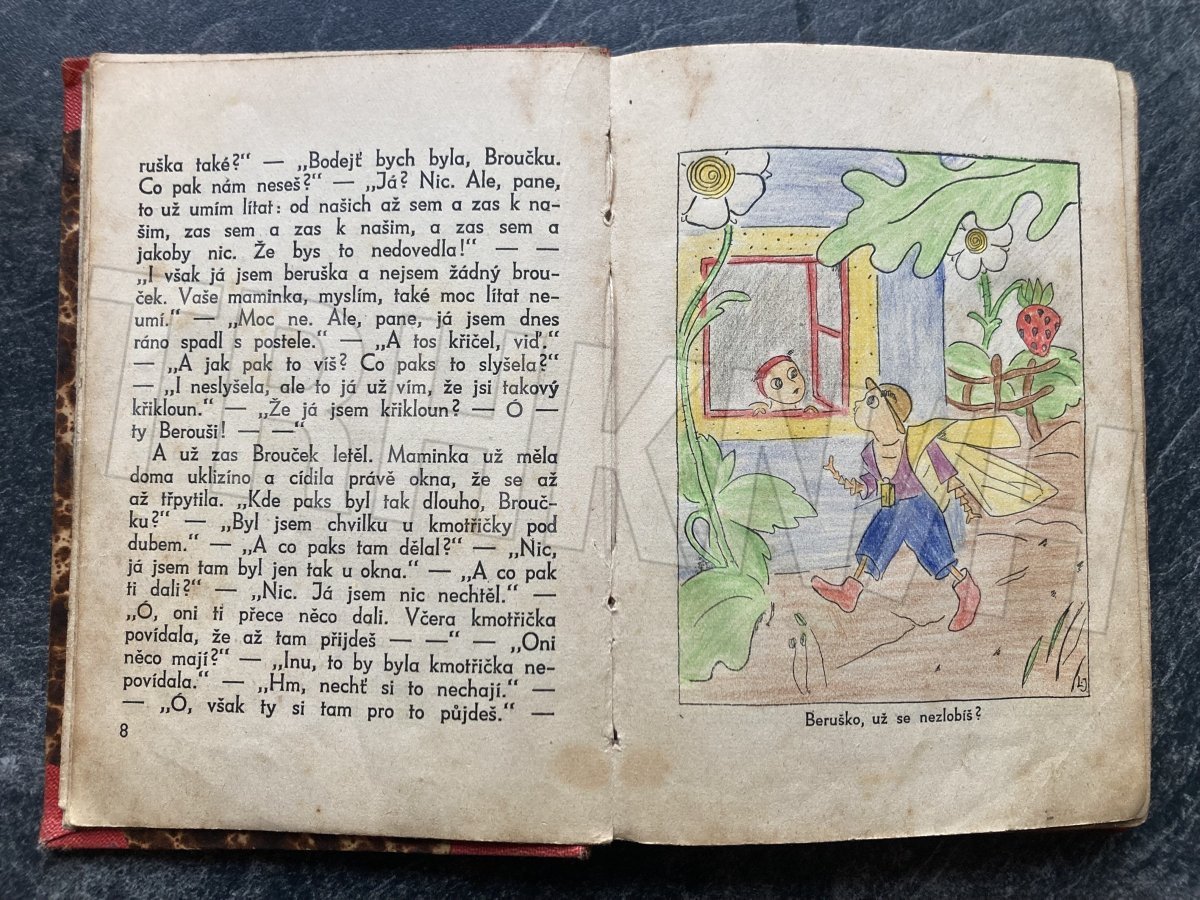 ruška také?“ — „Bodejť bych byla, Broučku.
Co pak nám neseš?“ — „Já? Nic. Ale, pane,
to už umím lítat: od našich až sem a zas k na-
šim, zas sem a zas k našim, a zas sem a
jakoby nic. Že bys to nedovedla!“ — —
„I však já jsem beruška a nejsem žádný brou-
ček. Vaše maminka, myslím, také moc lítat ne-
umí.“ — „Moc ne. Ale, pane, já jsem dnes
ráno spadl s postele.“ — „A tos křičel, viď.“
— „A jak pak to víš? Co paks to slyšela?“
— „I neslyšela, ale to já už vím, že jsi takový
křikloun.“ — „Že já jsem křikloun? — Ó —
ty Berouši! — —“
A už zas Brouček letěl. Maminka už měla
doma uklizíno a cídila právě okna, že se až
až třpytila. „Kde paks byl tak dlouho, Brouč-
ku?“ — „Byl jsem chvilku u kmotřičky pod
dubem.“ — „A co paks tam dělal?“ — „Nic,
já jsem tam byl jen tak u okna.“ — „A co pak
ti dali?“ — „Nic. Já jsem nic nechtěl.“ —
„Ó, oni ti přece něco dali. Včera kmotřička
povídala, že až tam přijdeš — —“ — „Oni
něco mají?“ — „Inu, to by byla kmotřička ne-
povídala.“ — „Hm, nechť si to nechají.“ —
— „Ó, však ty si tam pro to půjdeš.“ —
8
LJ
Beruško, už se nezlobíš?